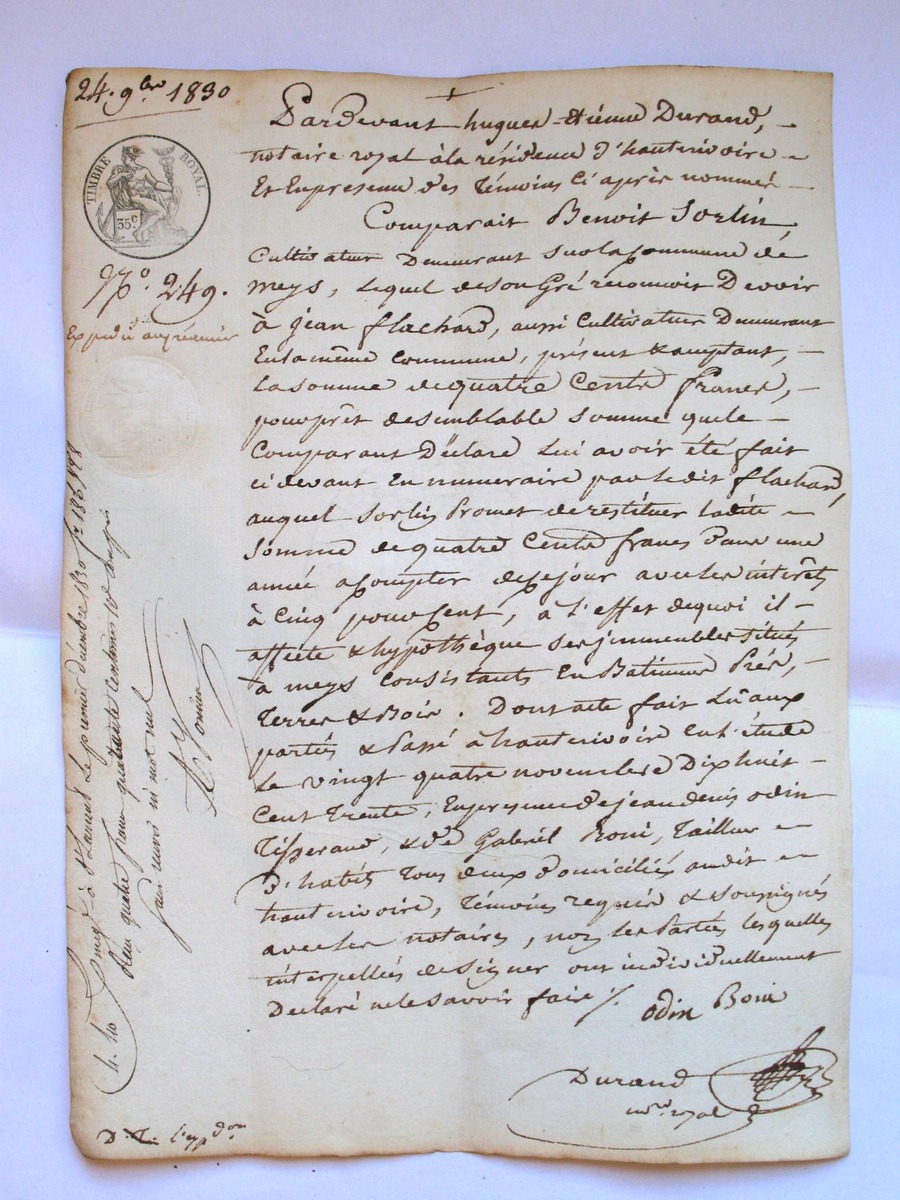 24. 9bre 1830
TIMBRE ROYAL.
35c
No. 249.
Expédié au créancier
Pardevant hugues-Etienne Durand,
notaire royal à la résidence d'hauterivoire
Et En presence des Témoins Ci après nommés
Comparait Benoit Sorlin,
Cultivateur Demeurant sur la Commune de
meys, lequel de son Gré reconnoit Devoir
à jean flachard, aussi Cultivateur Demeurant
En la même Commune, présent & acceptant,
la somme de quatre Cents francs,
pour prêt de semblable somme que le
Comparant Déclare lui avoir été fait
ci devant En numeraire par ledit flachard,
auquel Sorlin Promet de restituer ladite
somme de quatre Cents francs dans une
année a Compter de Ce jour avec les intérêts
à Cinq pour Cent, à l'effet de quoi il
affecte & hypothèque ses immeubles situés
à meys Consistants En Batimens Prés,
Terres & Bois. Dont acte fait Lû aux
parties & Passé à hauterivoire en l'étude
Le vingt quatre novembre Dix huit
Cent Trente, En presence de jean denis odin
Tisserand, & de Gabriel Boni, Tailleur
d'habits Tous deux Domiciliés audit
hauterivoire, Témoins requis & soussignés
avec les notaires, non les Parties lesquelles
interpellées de signer ont individuellement
Declaré ne le savoir faire ./.
odin Boni
Durand
nre royal
à St Laurent le premier décembre 1830 fo 186
Reçu quatre francs quarante centimes